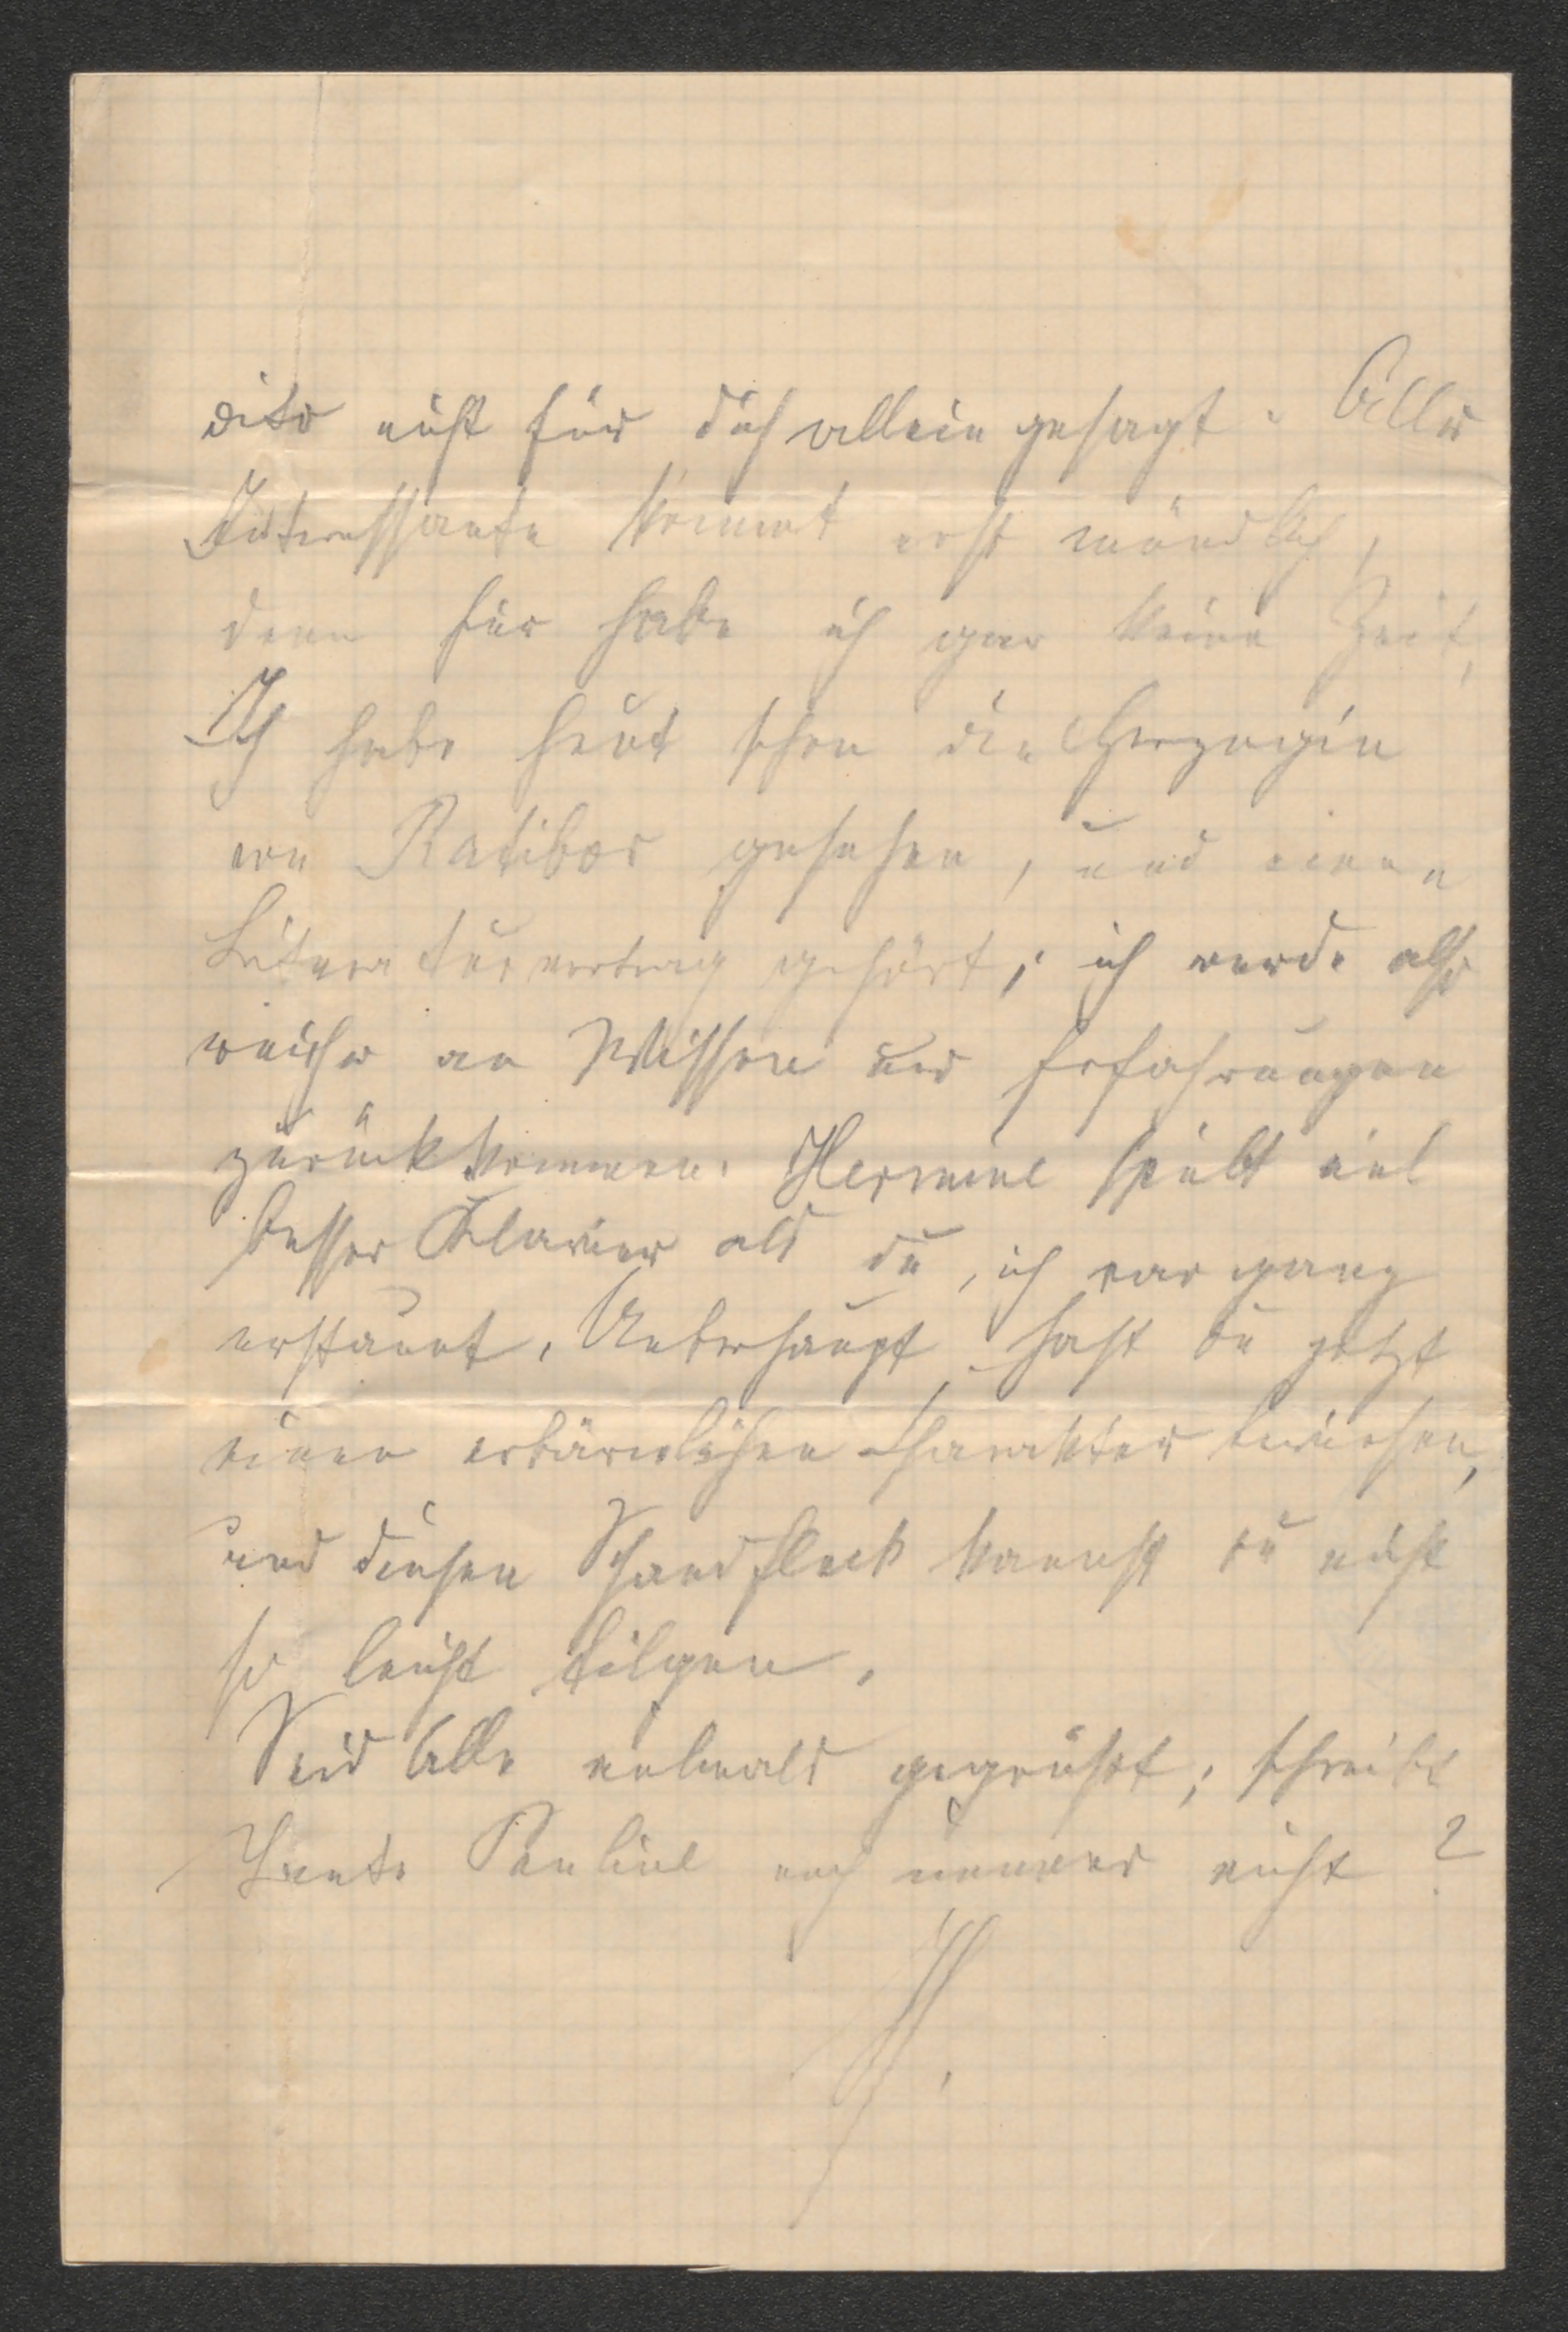 dito nicht für dich allein gesagt. Alles
Interessante kommt erst mündlich,
denn für habe ich gar keine Zeit,
Ich habe heut schon die Herzogin
von Ratibor gesehen, und einen
Literaturvortrag gehört; ich werde also
reicher an Wissen und Erfahrungen
zurückkommen. Hermine spielt viel
besser Klavier als du, ich war ganz
erstaunt. Ueberhaupt hast du jetzt
einen erbärmlichen Charakter bewiesen,
und diesen Schandfleck kannst du nicht
so leicht tilgen.
Seid Alle vielmals gegrüßt; schreibt
Tante Pauline noch immer nicht?
H.